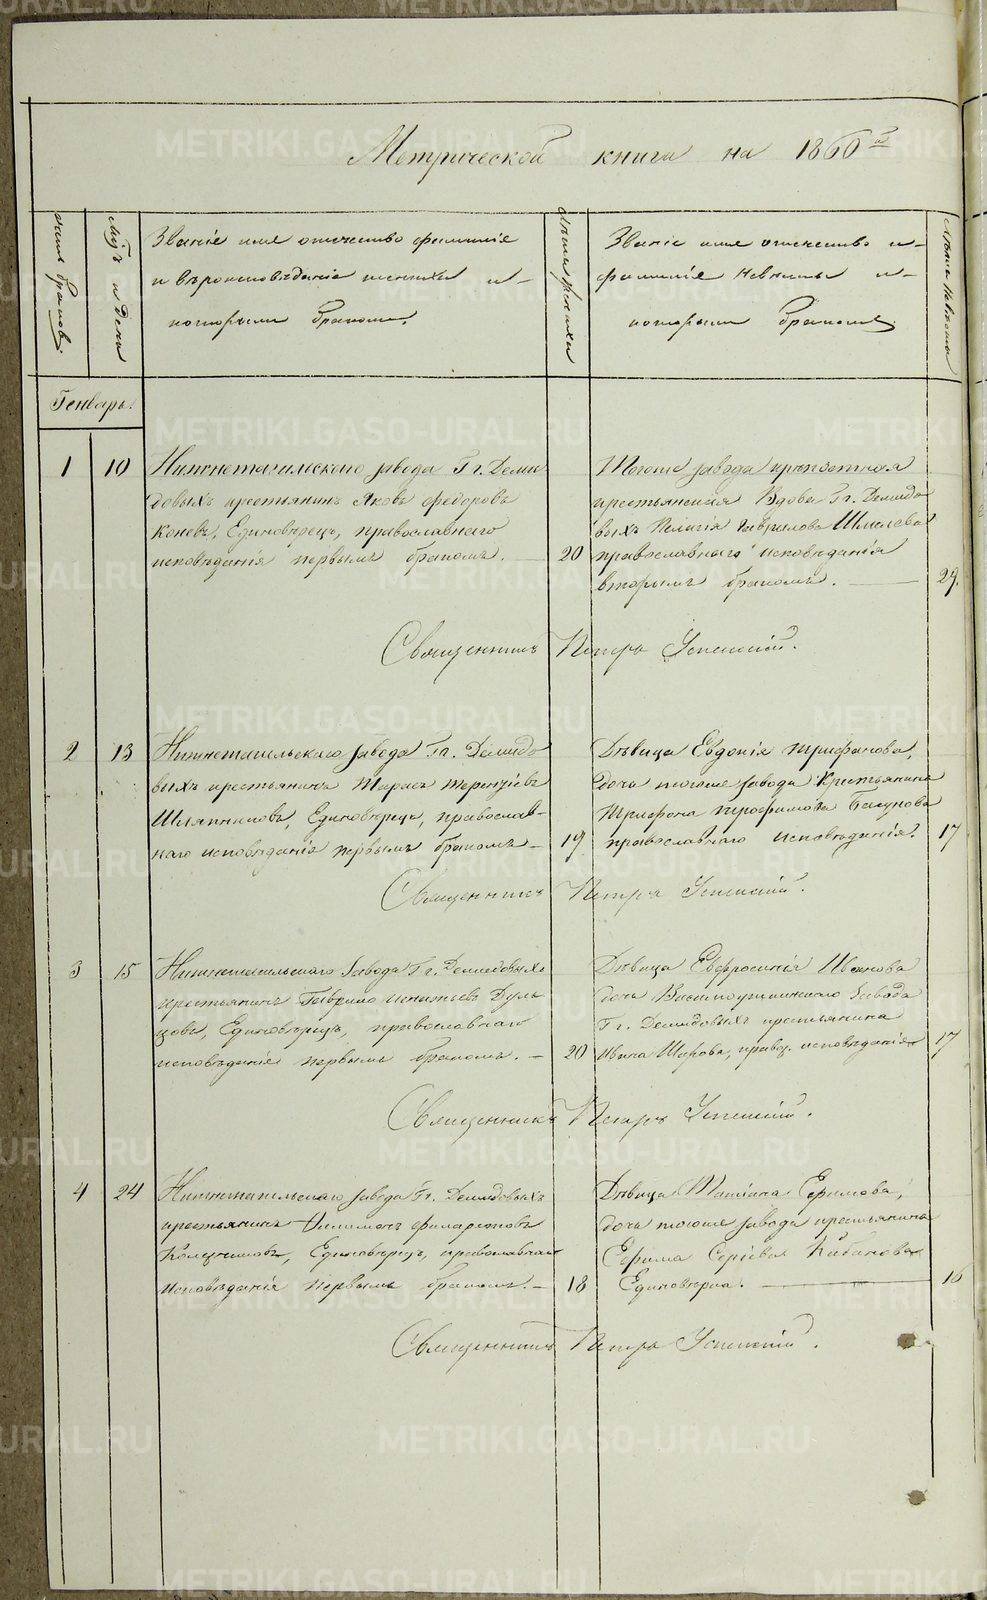 Метрической книги на 1860й
Счетъ браковъ.
Мцъ и День
Званіе имя отечество фамилія
и вѣроисповѣданіе жениха и
которымъ бракомъ.
Лѣта жениха
Званіе имя отечество и
фамилія невѣсты и
которымъ бракомъ
Лѣта невѣсты
Генварь.
1
10
Нижнетагильскаго завода Гг. Деми
довыхъ крестьянинъ Яковъ Федоровъ
Коневъ, Единовѣрецъ, православнаго
исповѣданія первымъ бракомъ.
20
Тогоже завода
крестьянская Вдова Гг. Демидо
выхъ Гаврилова
православнаго исповѣданія
вторымъ бракомъ.
29.
Священникъ Петръ Успенскій.
2
13
Нижнетагильскаго завода Гг. Демидо
выхъ крестьянинъ Тарасъ Терентіевъ
Шляпниковъ, Единовѣрецъ, православ-
наго исповѣданія первымъ бракомъ
19
Дѣвица Евдокія Трифонова,
дочь тогоже завода Крестьянина
Трифона Трофимова
православнаго исповѣданія.
17
Священникъ Петръ Успенскій.
3
15
Нижнетагильскаго завода Гг. Демидовыхъ
крестьянинъ Гаврило Игнатьевъ Дуль
цовъ, Единовѣрецъ, православнаго
исповѣданія первымъ бракомъ.
20
Дѣвица Евфросинія Иванова
дочь Висимоуткинскаго завода
Гг. Демидовыхъ крестьянина
Ивана Шарова, правос. исповѣданія
17
Священникъ Петръ Успенскій.
4
24
Нижнетагильскаго завода Гг. Демидовыхъ
крестьянинъ Филаретовъ
Единовѣрецъ, православнаго
исповѣданія первымъ бракомъ.
18
Дѣвица Татіана Ефимова,
дочь тогоже завода крестьянина
Ефима Сергіева Кабанова
Единовѣрка.
16
Священникъ Петръ Успенскій.
METRIKI.GASO-URAL.RU